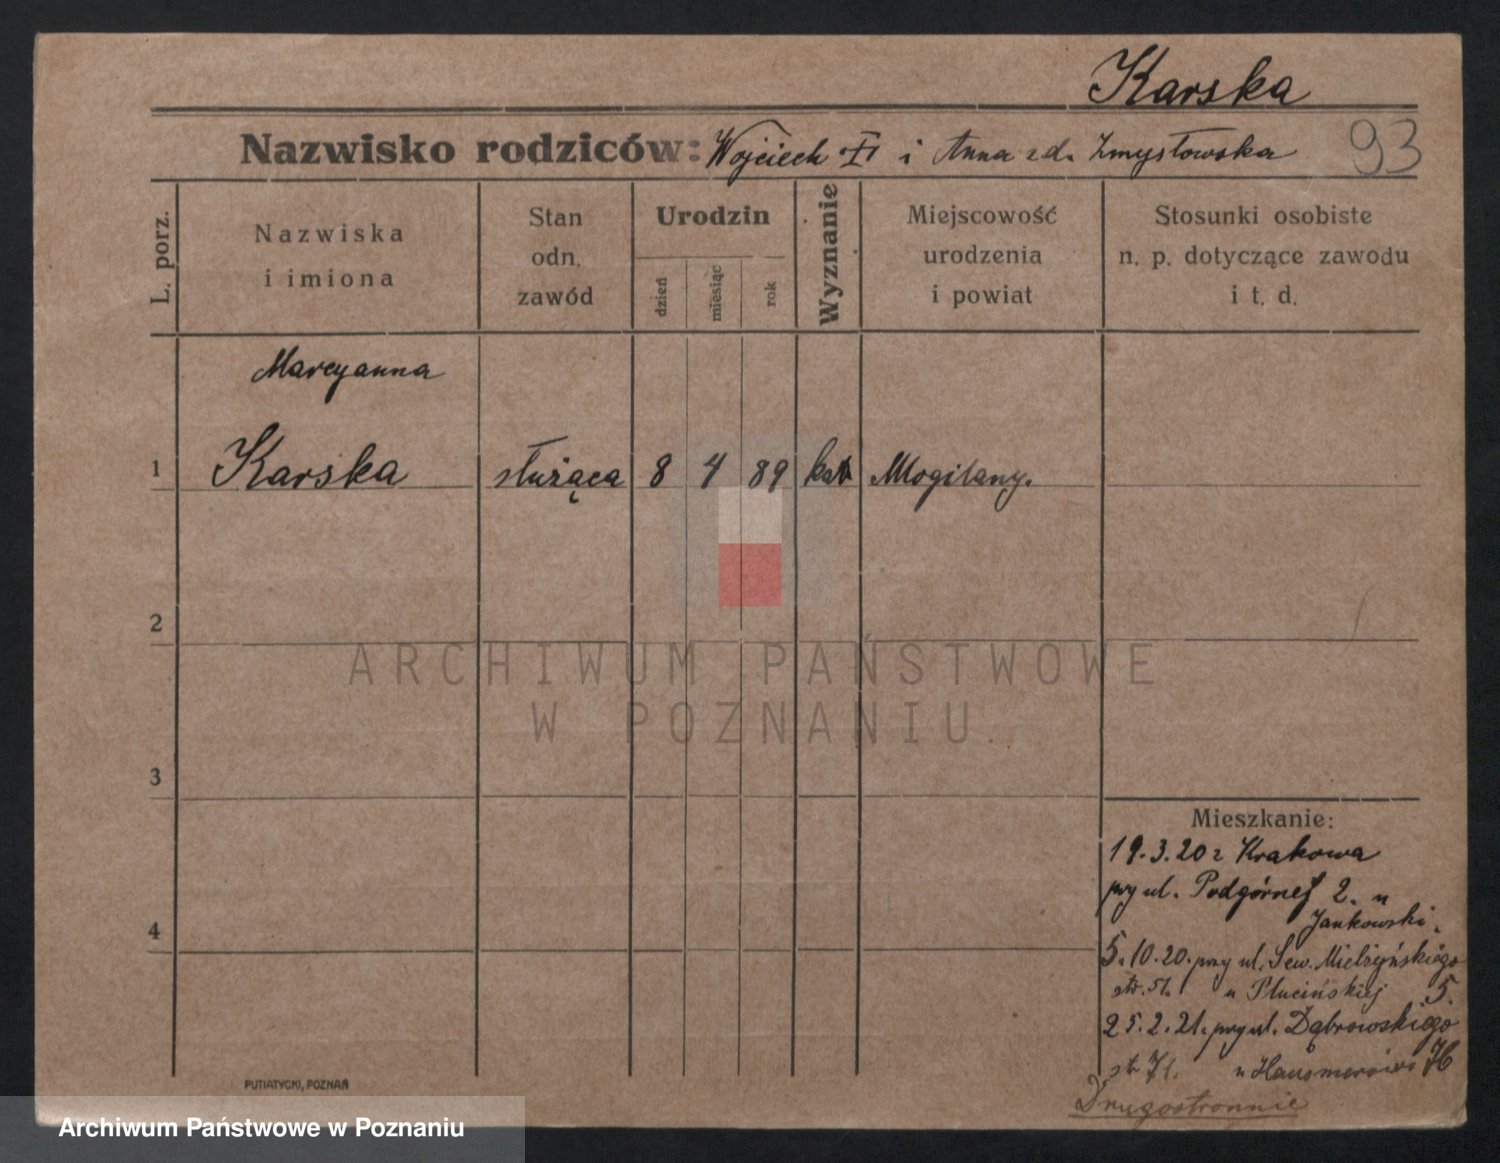 Karska
Nazwisko rodziców: Wojciech i Anna zd. Zmysłowska 93
L. porz.
Nazwiska
i imiona
Stan
odn.
zawód
Urodzin
dzień
miesiąc
rok
Wyznanie
Miejscowość
urodzenia
i powiat
Stosunki osobiste
n. p. dotyczące zawodu
i t. d.
Maryanna
1 Karska służąca 8 4 89 kat Mogilany.
2
ARCHIWUM PAŃSTWOWE
W POZNANIU
3
Mieszkanie:
19.3.20 z Krakowa
przy ul. Podgórnej 2. u
Jankowski.
4
5.10.20. przy ul. Sew. Mielżyńskiego
u Plucińskiej 5.
25.2.21. przy ul. Dąbrowskiego
u
Drugostronnie
PUTIATYCKI, POZNAŃ
Archiwum Państwowe w Poznaniu